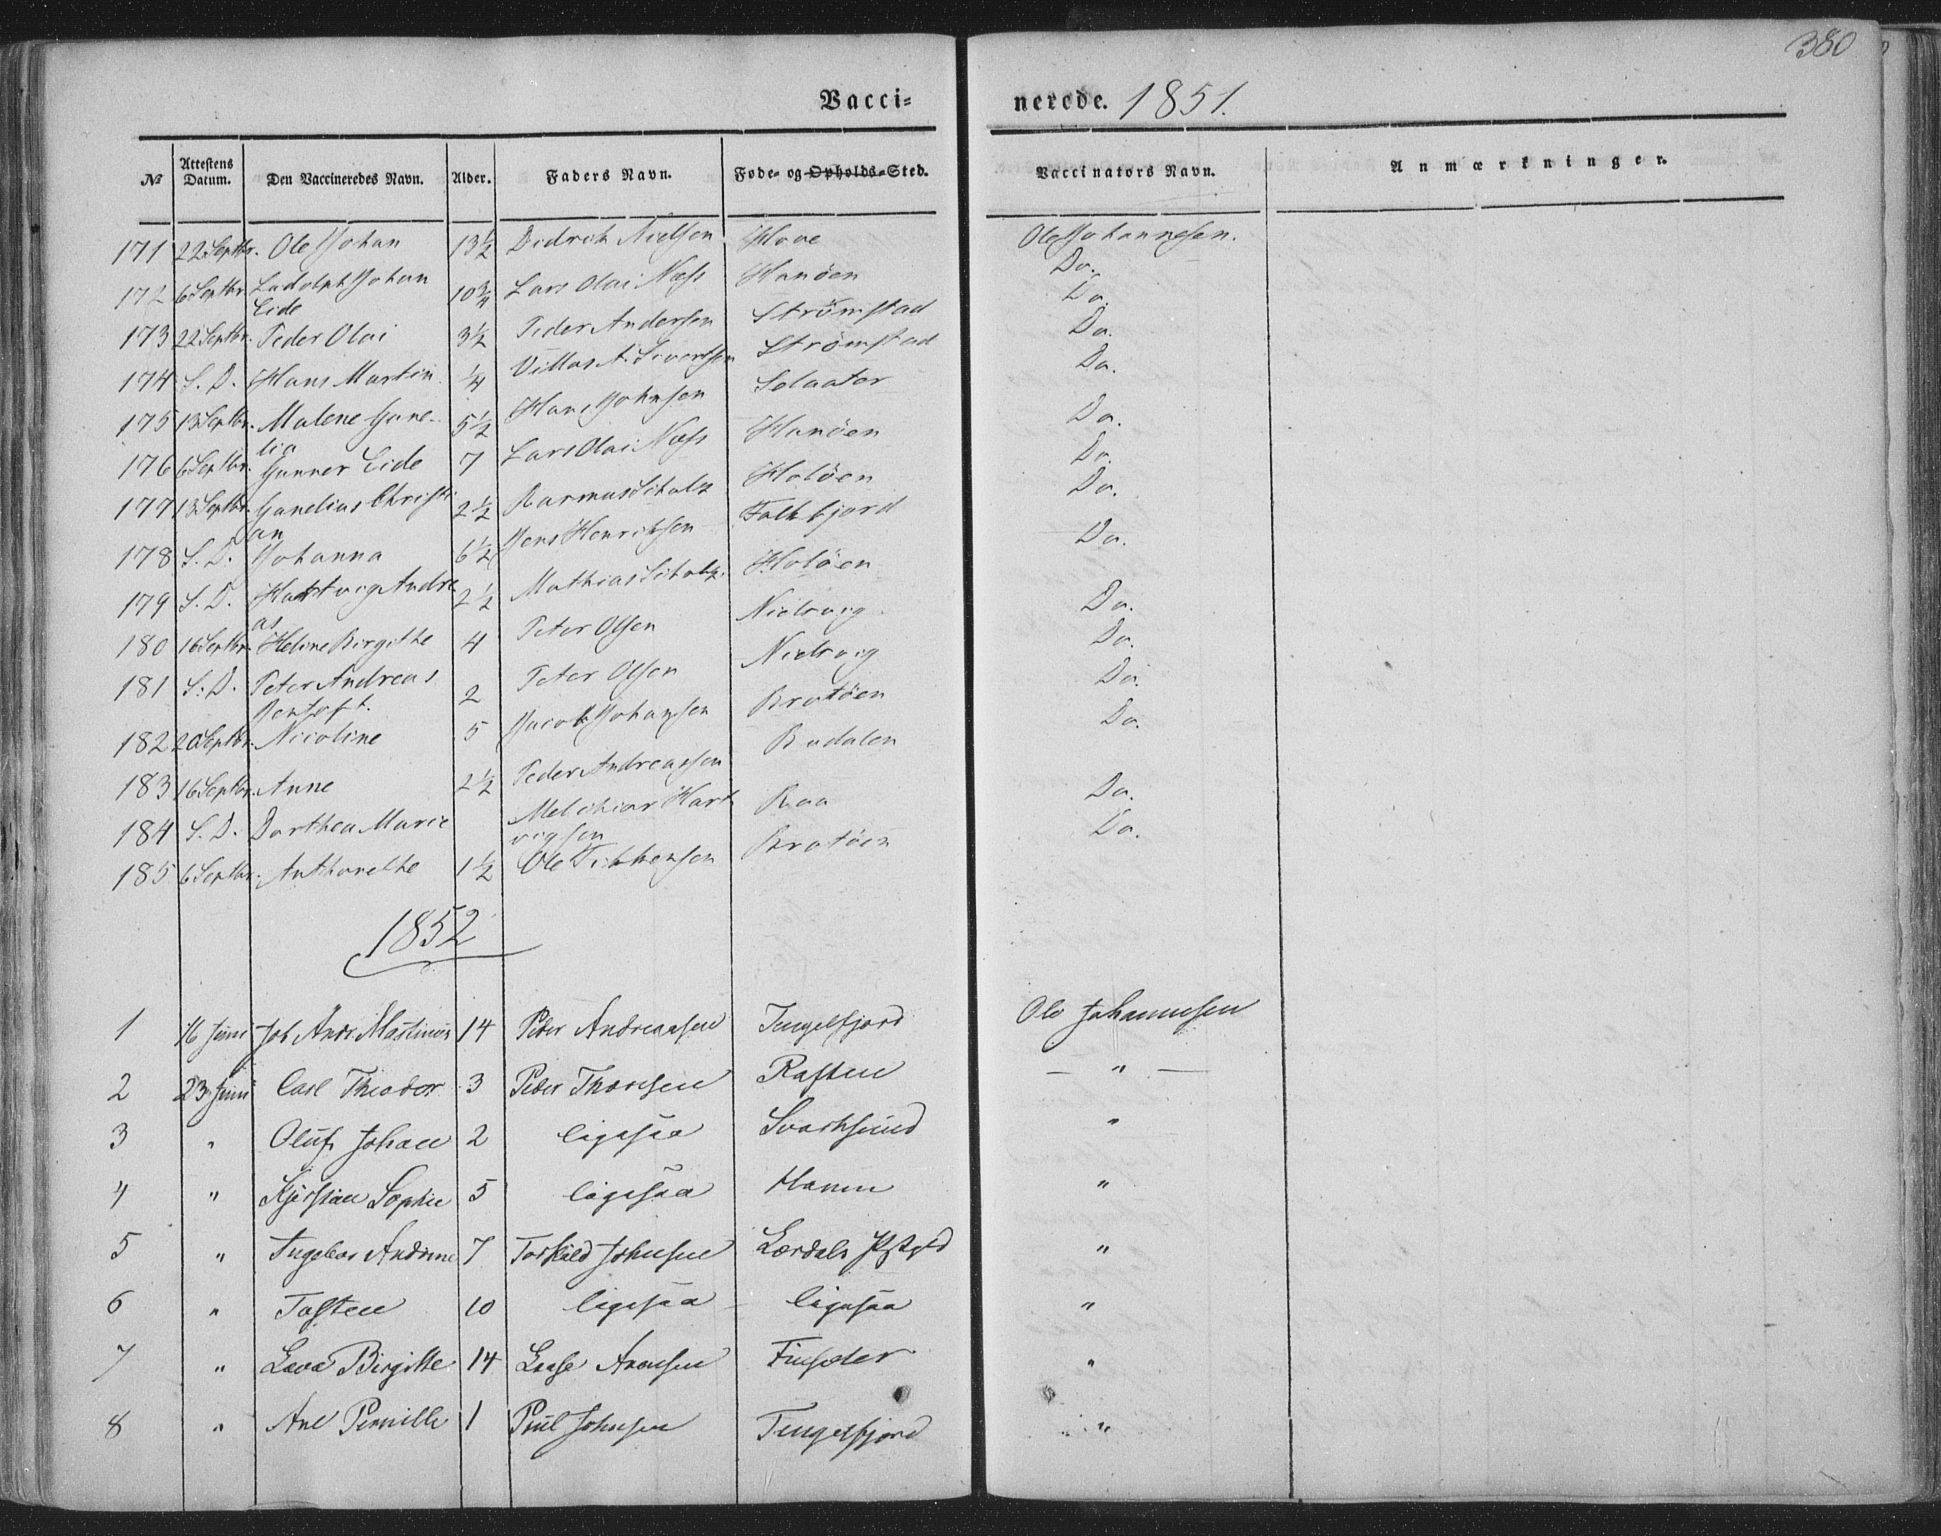 380
Vacci-nerede. 1851.
№ Attestens Datum. Den Vaccineredes Navn. Alder. Faders Navn. Føde- og Opholds-Sted. Vaccinators Navn. Anmærkninger.
171 22 Septbr. Ole Johan 13½ Didrich Nielsen Hove Ole Johannesen.
172 6 Septbr. Ludolph Johan Eide 10¾ Lars Olai Næss Hanöen Do.
173 22 Septbr. Peder Olai 3½ Peder Andersen Strömstad Do.
174 S. D. Hans Martin ¼ Villas A. Sivertsen Strömstad Do.
175 13 Septbr. Malene Hanelia 5½ Hans Johnsen Selaater Do.
176 6 Septbr. Gunner Eide 7 Lars Olai Næss Hanöen Do.
177 13 Septbr. Hanelius Christian 2½ Rasmus Scholz Holöen Do.
178 S. D. Johanna 6½ Jens Henriksen Falkfjord Do.
179 S. D. Hartvig Andreas 2½ Mathias Scholz Holöen Do.
180 16 Septbr. Heline Birgithe 4 Peter Olsen Nielsvig Do.
181 S. D. Peter Andreas Bentoft. 2 Peter Olsen Nielsvig Do.
182 20 Septbr. Nicoline 5 Jacob Johansen Brotöen Do.
183 16 Septbr. Anne 2½ Peder Andreassen Budalen Do.
184 S. D. Dorthea Marie Melchior Hartvigsen Raa Do.
185 6 Septbr. Anthonethe 1½ Ole Tikkensen Brotöen Do.
1852
1 16 Juni Joh Andr Martinus 14 Peder Andreassen Tengelfjord Ole Johannesen
2 23 Juni Carl Theodor 3 Peder Thoresen Raften — " —
3 " Oluf Johan 2 ligesaa Svartsund "
4 " Kjerstian Sophie 5 ligesaa Hanen "
5 " Ingebor Andrine 7 Torkild Johnsen Lærdals Pstgld "
6 " Tosten 10 ligesaa ligesaa "
7 " Lava Birgitte 14 Lasse Aronsen Finsæter "
8 " Ane Pernille 1 Poul Johnsen Tengelfjord "